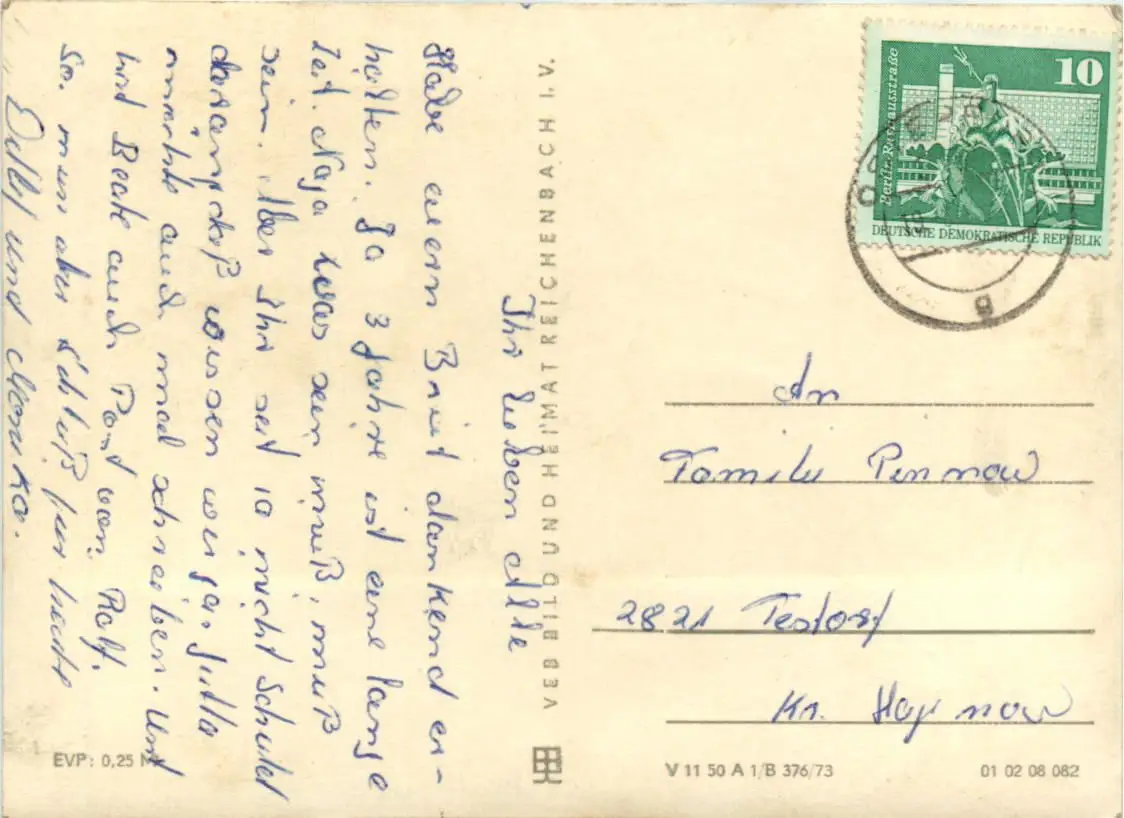 Ihr lieben Alle
Habe euern Brief dankend er-
halten. Ja 3 Jahre ist eine lange
Zeit. Naja was sein muß, muß
sein. Aber Ihr seit ja nicht Schuld
daran,
und Beate auch Post von Ralf.
So. nun aber Schluß für heute
und Monika.
VEB BILD UND HEIMAT REICHENBACH I. V.
EVP: 0,25 M
10
Berlin, Rathausstraße
DEUTSCHE DEMOKRATISCHE REPUBLIK
g
An
Familie Pennow
2821 Testorf
Kr. Hagenow
V 11 50 A 1/B 376/73
01 02 08 082